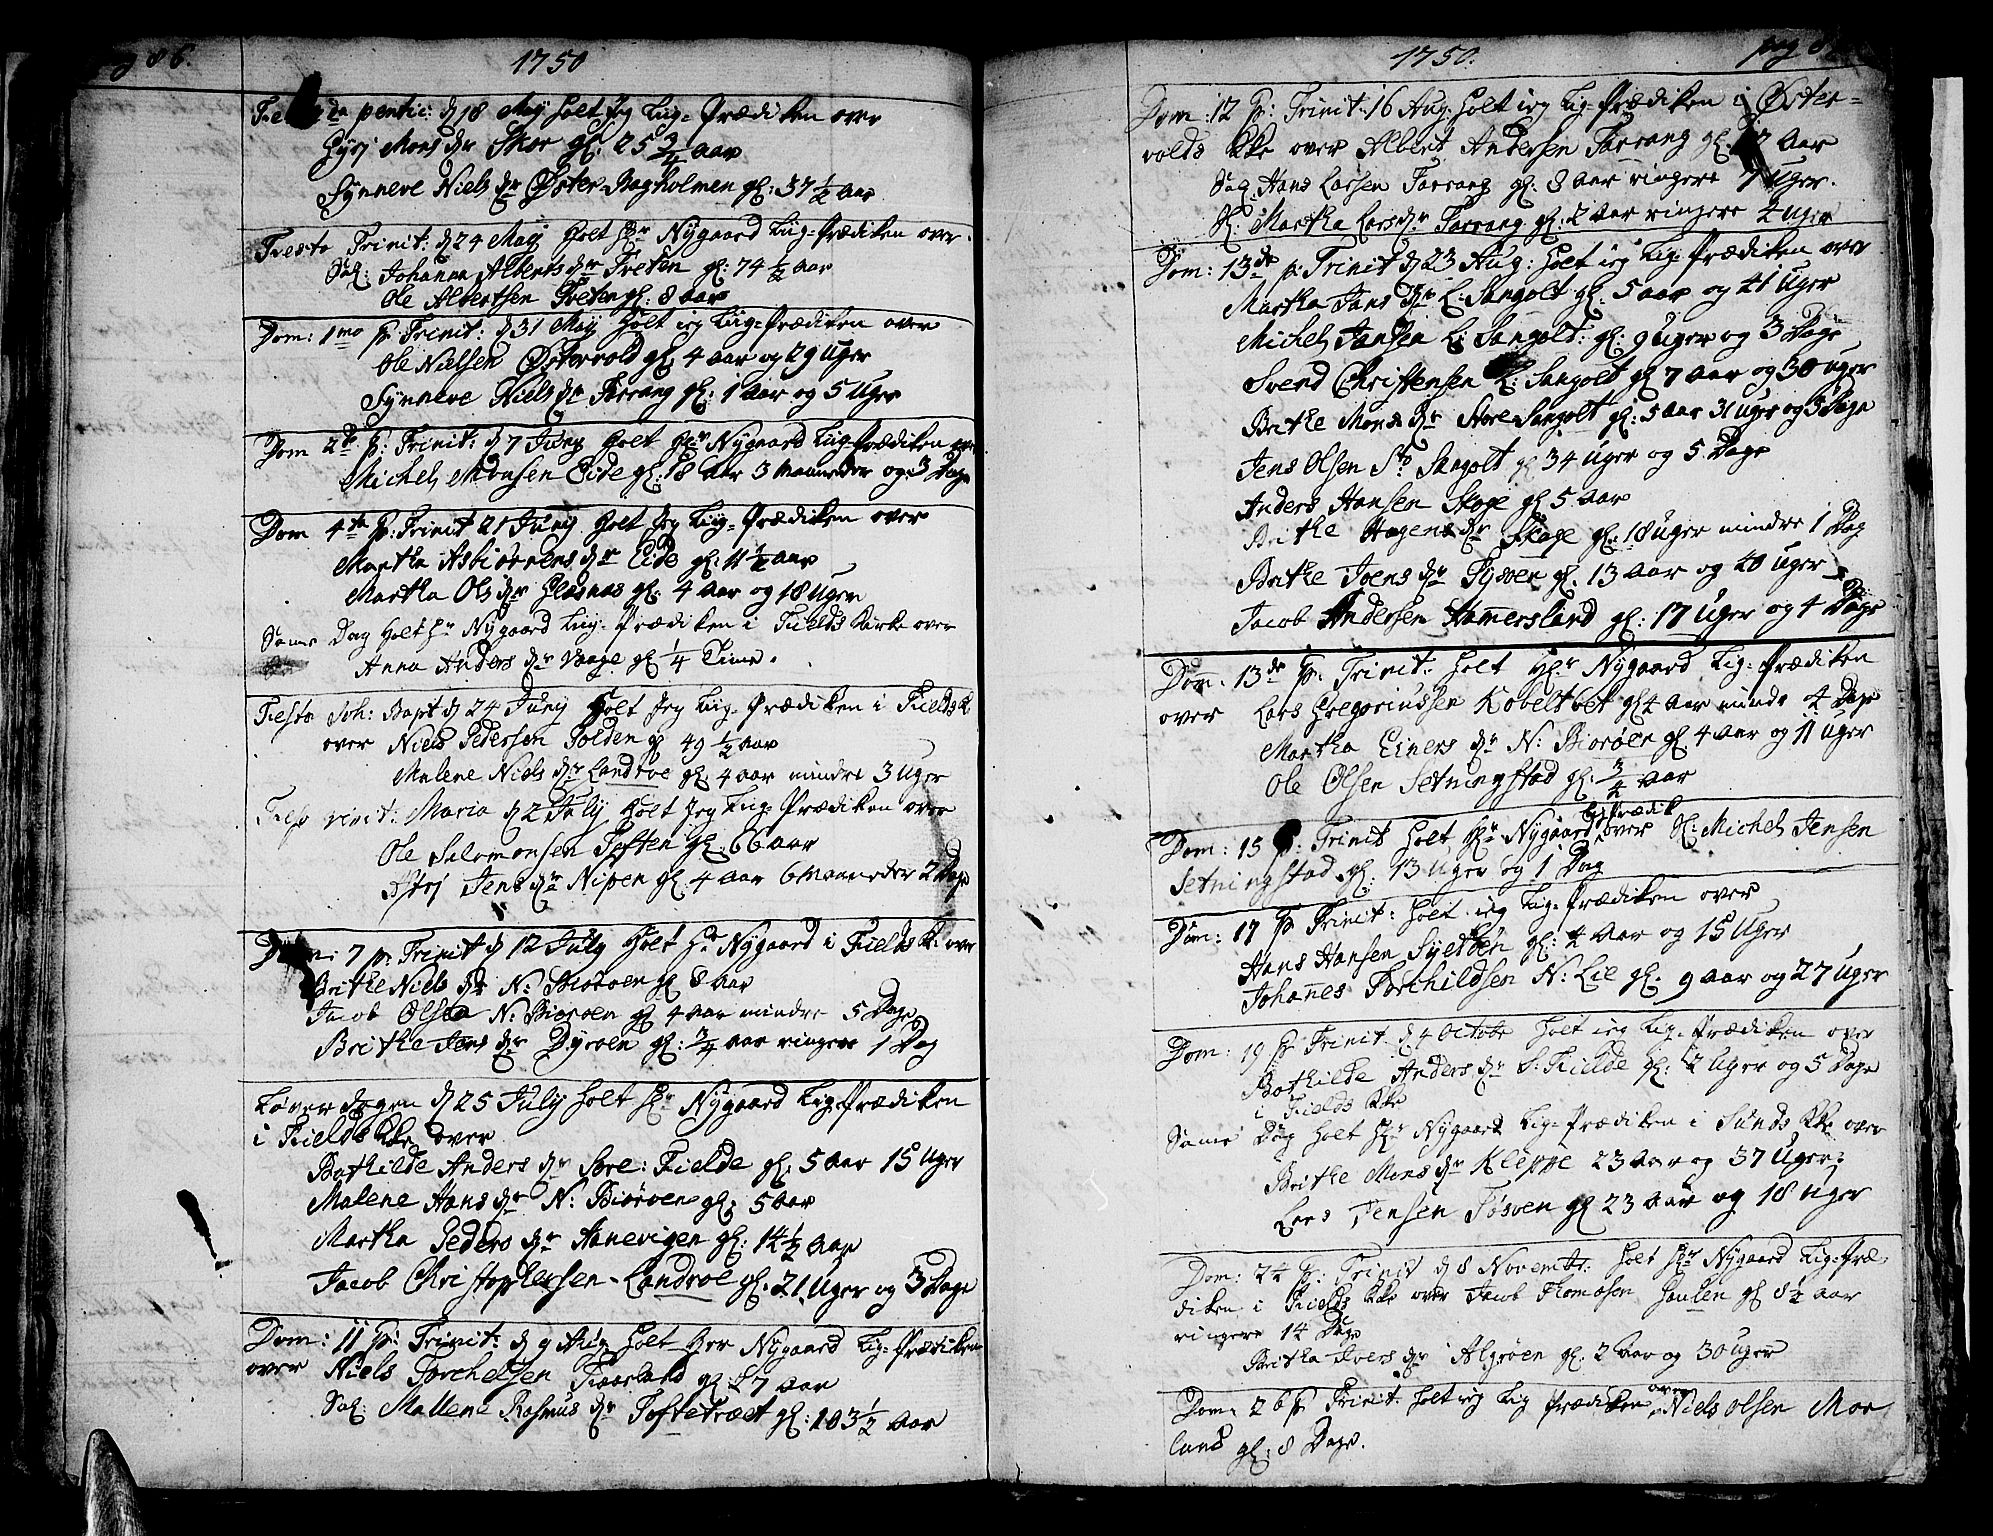 86.
1750
pentic: d 18 Maij holt Jeg Liig-Prædiken over
Gyrj Mons dr Skor gl: 25 3/4 aar
Synneve Niels dr Øster-Bagholmen gl: 37 1/2 Aar
Festo Trinit: d 24 Maij holt Hr Nygaard Liig-Prædiken over
Sal: Johanna Alberts dr Treten gl: 74 1/2 aar
Ole Albertsen Treten gl: 8 aar
Dom: 1mo p: Trinit: d 31 Maij holt ieg Liig-Prædiken over
Ole Nielsen Østervold gl: 4 aar og 29 Uger
Synneve Niels dr Torrang gl: 1 Aar og 5 Uger
Dom 2de p: Trinit: d 7 Junij holt Hr Nygaard Lig-Prædiken over
Michel Monsen Eide gl: 18 Aar 3 Maaneder og 3 Dage
Dom 4ta p: Trinit 21 Junij holt Jeg Liig-Prædiken over
Martha Asbiørnens dr Eide gl: 11 1/2 Aar
Martha Ols dr Glesnæs gl: 4 Aar og 18 Uger
Same Dag holt Hr Nygaard Liig-Prædiken i Fields Kirke over
Anna Anders dr Vaage gl 1/4 Time.
Festo Joh: Bapt d 24 Junij holt Jeg Liig-Prædiken i Fields K.
over Niels Pedersen Solden gl 49 1/2 aar
Malene Niels dr Landroe gl: 4 aar mindre 3 Uger
Fest visit: Maria d 2 July holt Jeg Liig-Prædiken over
Ole Salomonsen Toften gl: 66 aar
Jens dr Nipen gl: 4 Aar 6 Maaneder 2 Dage
Dom: 7 p: Trinit d 12 July holt Hr Nygaard i Fields K: over
Brithe Niels dr N: Biorøen gl 8 Aar
Jacob Olsen N: Biorøen gl 4 aar mindre 5 Dage
Brithe Jens dr Dyrøen gl: 3/4 aar ringere 1 Dag
Løverdagen d 25 July holt Hr Nygaard Lig-Prædiken
i Fields Kke over
Bothilde Anders dr Søre: Fielde gl: 5 Aar 15 Uger
Malene Hans dr N: Biorøen gl: 5 aar
Martha Peders dr Aanevigen gl: 14 1/2 Aar
Jacob Christophersen Landroe gl: 21 Uger og 3 Dage
Dom: 11 p: Trinit: d 9 Aug: holt Her Nygaard Lig-Prædiken
over Niels Torchelsen gl: 87 aar
Sal: Mallene Rasmus dr Toftetræet gl: 103 1/2 Aar
1750.
pag
Dom: 12 p: Trinit: 16 Aug: holt ieg Lig-Prædiken i Øster-
volds Kke over Albert Andersen Torrang gl: Aar
Sal Hans Larsen Torrang gl: 8 Aar ringere 7 Uger.
Sl: Martha Lars dr Torrang gl: 2 Aar ringere 2 Uger
Dom: 13de p: Trinit d 23 Aug: holt ieg Lig-Prædiken over
Martha Jans dr L: Sangolt gl: 5 aar og 41 Uger
Michel Jansen L: Sangolt: gl: 9 Uger og 3 Dage
Svend Christensen L: Sangolt gl 7 aar og 30 Uger
Brithe Mons dr Store Sangolt gl: 5 aar 31 Uger og 3 Dage
Jens Olsen St: Sangolt gl 34 Uger og 5 Dage
Anders Hansen Skoge gl 5 aar
Brithe Hagens dr Skage gl: 18 Uger mindre 1 Dag
Brithe Joens dr gl. 13 Aar og 40 Uger
Jacob Andersen Hamersland gl: 17 Uger og 4 Dage
Dom: 13de p: Trinit: holt Hr Nygaard Lig-Prædiken
over Lars Gregoriussen Kobeltvet gl 4 Aar mindre 4 Dage
Martha Einers dr N: Biorøen gl 4 Aar og 11 Uger
Ole Olsen Setningstad gl: 3/4 Aar
Dom: 15 p: Trinit holt Hr Nygaard Lig Prædik over Sl: Michel Jensen
Setningstad gl: 13 Uger og 1 Dag
Dom: 17 p Trinit: holt ieg Lig-Prædiken over
Hans Hansen gl: 4 Aar og 15 Uger
Johannes Torchildsen N: Lie gl: 9 aar og 27 Uger
Dom: 19 p Trinit d 4 Octobr holt ieg Lig-Prædiken over
Bothilde Anders dr S: Fielde gl: 2 Uger og 5 Dage
i Fields Kke
Same Dag holt Hr Nygaard Lig-Prædiken i Sunds Kke over
Brithe Mons dr Kleppe 23 Aar og 37 Uger
Lars Jensen Tøsøen gl 23 aar og 18 Uger
Dom: 24 p: Trinit d 8 Novembr: holt Hr Nygaard Lig-Præ-
diken i Fields Kke over Jacob Thomasen gl 8 1/2 aar
ringere 14 Dage
Britha Ivers dr Algrøen gl: 2 Aar og 30 Uger
Dom: 26 p Trinit: holt ieg Lig Prædiken over Niels Olsen Mor
land gl: 8 Dage.